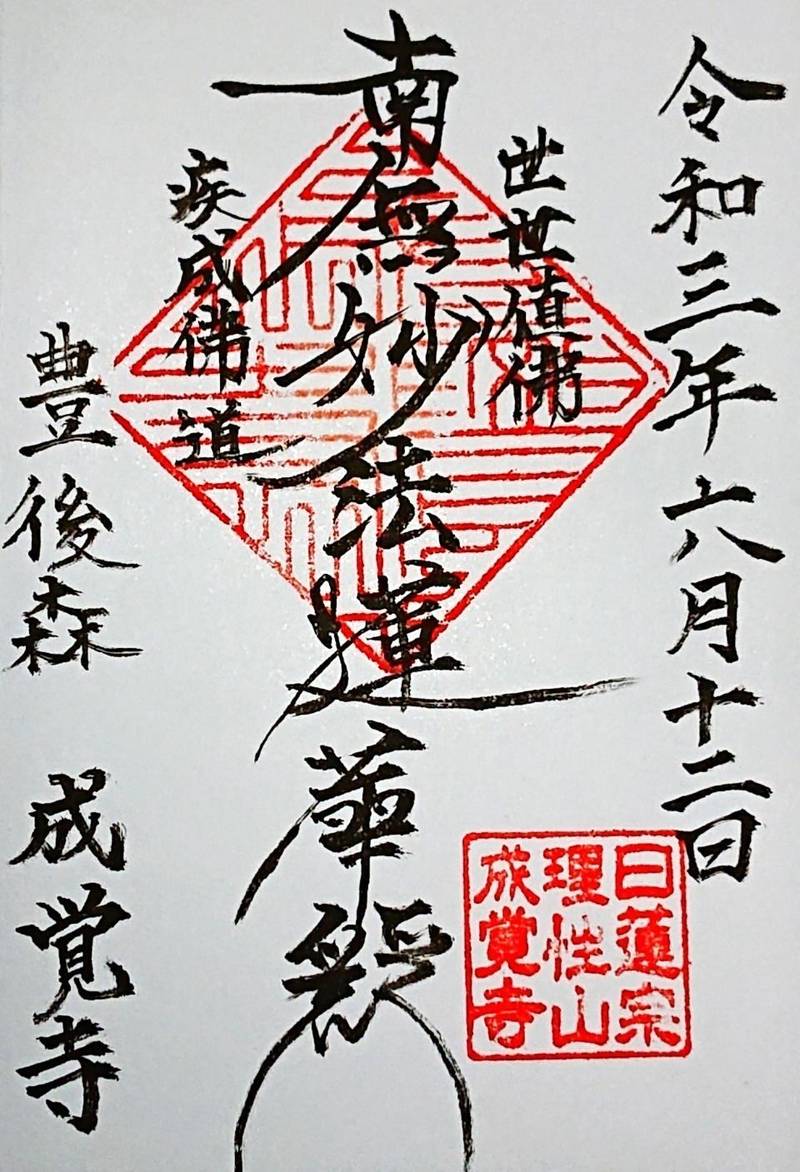 令和三年六月十二日
世世値佛
南無妙法蓮華経
疾成佛道
豊後森 成覚寺
日蓮宗
理性山
成覚寺